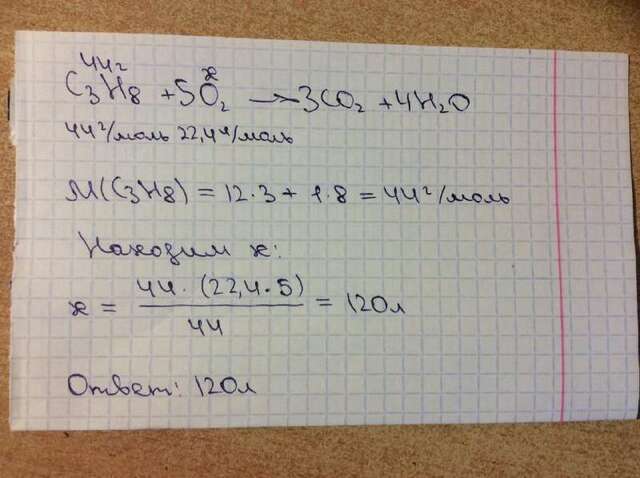 44г x
C₃H₈ + 5O₂ → 3CO₂ + 4H₂O
44г/моль 22,4л/моль
M(C₃H₈) = 12·3 + 1·8 = 44г/моль
Находим x:
x = 44·(22,4·5)/44 = 120л
Ответ: 120л